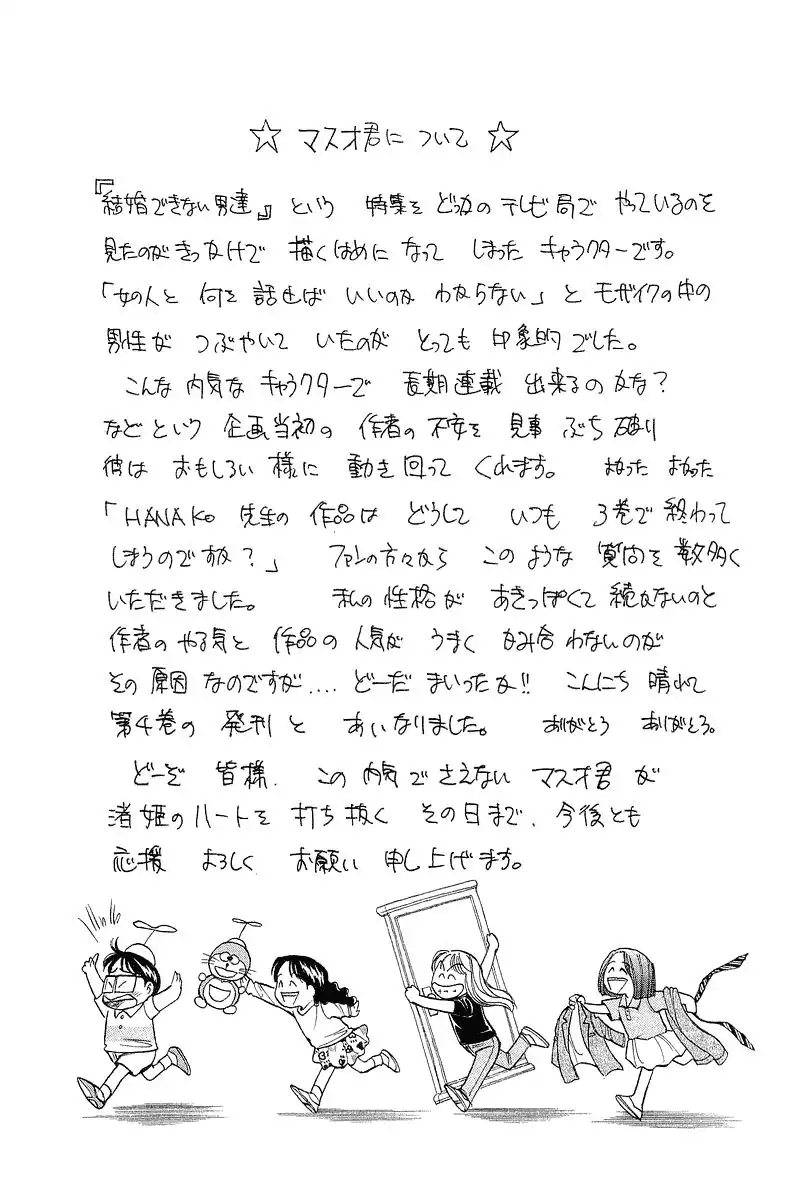 ☆ マスオ君について ☆
『結婚できない男達』という 特集を どっかの テレビ局で やっているのを
見たのがきっかけで 描くはめに なって しまった キャラクターです。
「女の人と 何を 話せば いいのか わからない」と モザイクの中の
男性が つぶやいて いたのが とっても 印象的でした。
こんな 内気な キャラクターで 長期連載 出来るのかな？
などという 企画当初の 作者の不安を 見事 ぶち破り
彼は おもしろい様に 動き回って くれます。 よかった よかった
「HANAKo 先生の 作品は どうして いつも 3巻で 終わって
しまうのですか？」 ファンの方々から このような 質問を 数多く
いただきました。 私の性格が あきっぽくて 続かないのと
作者の やる気と 作品の 人気が うまく かみ合わないのが
その 原因 なのですが‥‥ どーだ まいったか!! こんにち 晴れて
第4巻の 発刊と あいなりました。 ありがとう ありがとう。
どーぞ 皆様、この 内気で さえない マスオ君が
渚姫のハートを 打ち抜く その日まで、今後とも
応援 よろしく お願い 申し上げます。